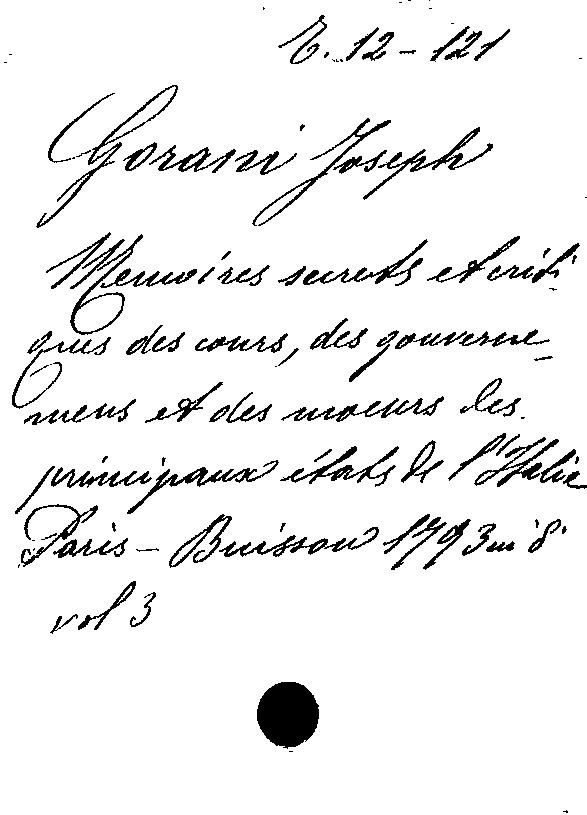 E. 12 - 121
Gorani Joseph
Memoires secrets et criti-
ques des cours, des gouverne-
mens et des moeurs des
principaux états de l'Italie
Paris - Buisson 1793 in 8°
vol 3